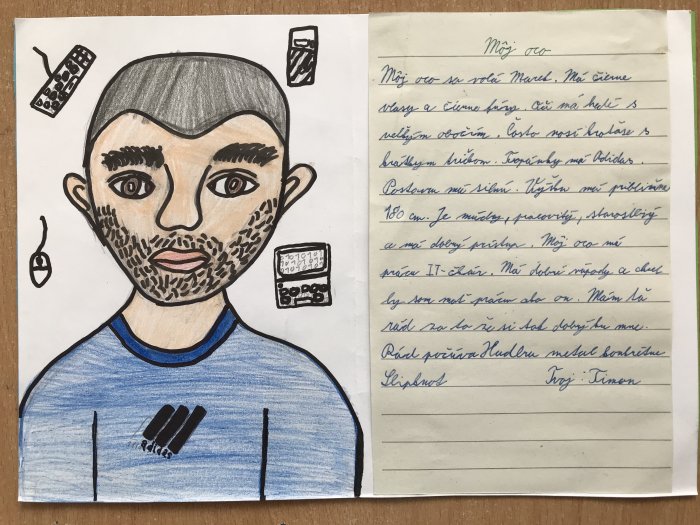 Môj oco
Môj oco sa volá Marek. Má čierne
vlasy a čierne fúzy. Oči má s
veľkým obočím. Často nosí kraťase s
krátkym tričkom. Topánky má Adidas.
Postavu má silnú. Výšku má približne
180 cm. Je múdry, pracovitý, starostlivý
a má dobrý prístup. Môj oco má
prácu IT-čkár. Má dobré nápady a chcel
by som mať prácu ako on. Mám ťa
rád za to že si tak dobrý ku mne.
Rád počúva Hudbu metal konkrétne
Slipknot Tvoj: Timon
adidas